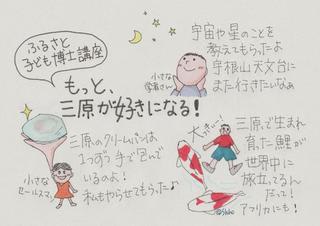 ふるさと
子ども博士講座
もっと、
三原が好きになる!
小さな
学者さん
宇宙や星のことを
教えてもらったよ
宇根山天文台に
また行きたいなぁ
三原のクリームパンは
1つずつ手で包んで
いるのよ!
私もやらせてもらった♪
小さな
セールスマン
大っきーい!
三原で生まれ
育った鯉が
世界中に
旅立ってるん
だって!
アメリカにも!